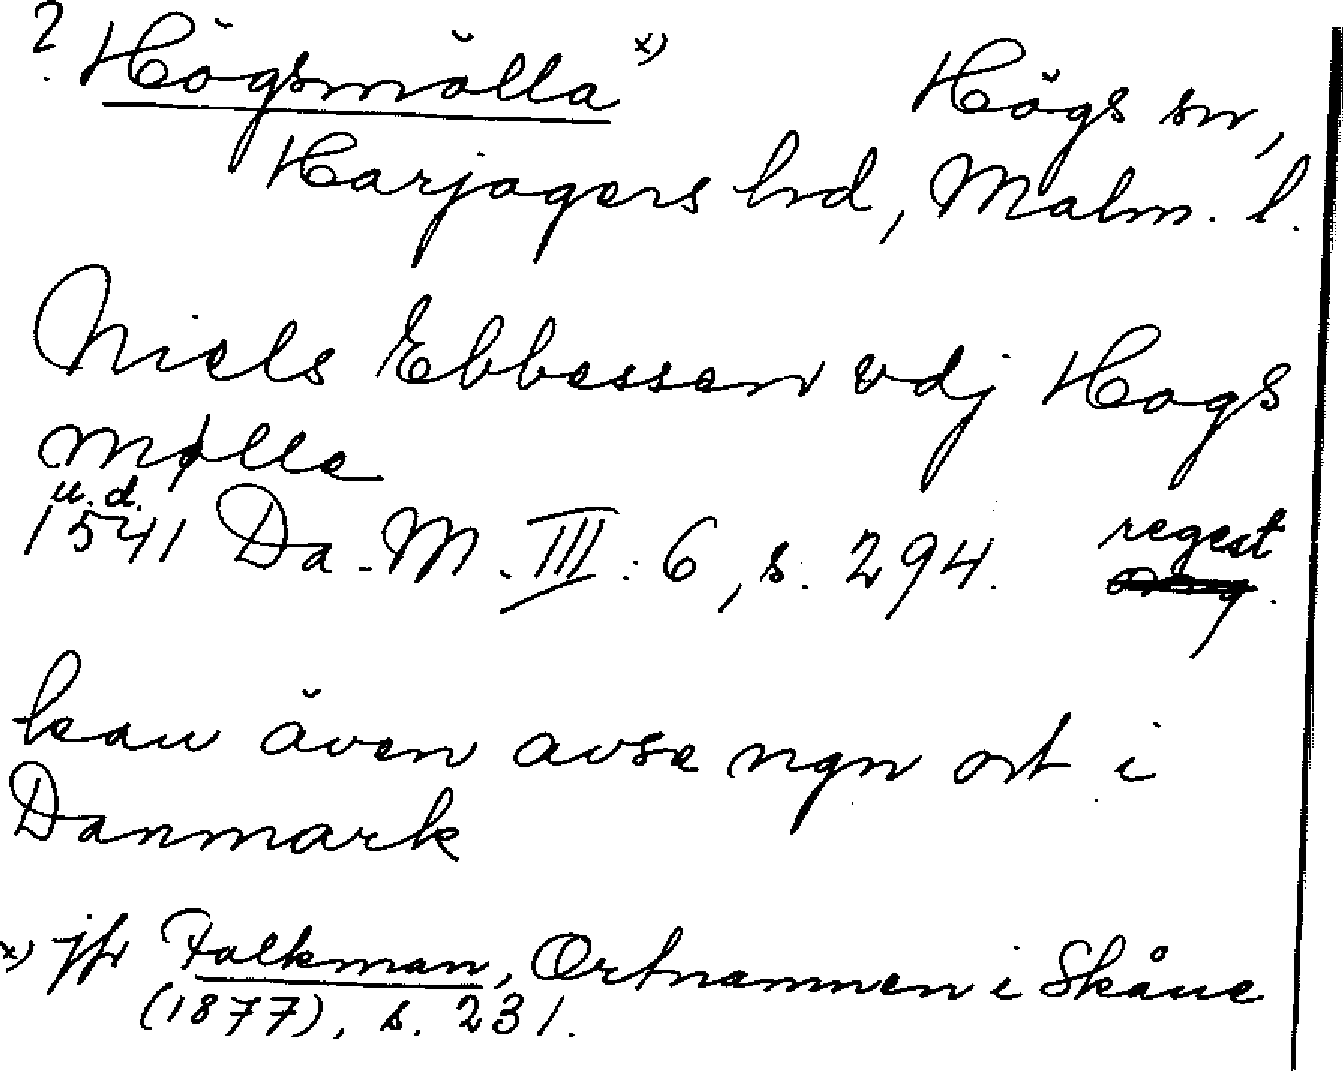 ? Högsmölla x) Högs sn,
Harjagers hrd, Malm. l.
Niels Ebbessen vdj Hogs
Mølle
u. d.
1541 Da. M. III: 6, s. 294. regest
kan även avse ngn ort i
Danmark
x) jfr Falkman, Ortnamnen i Skåne
(1877), s. 231.